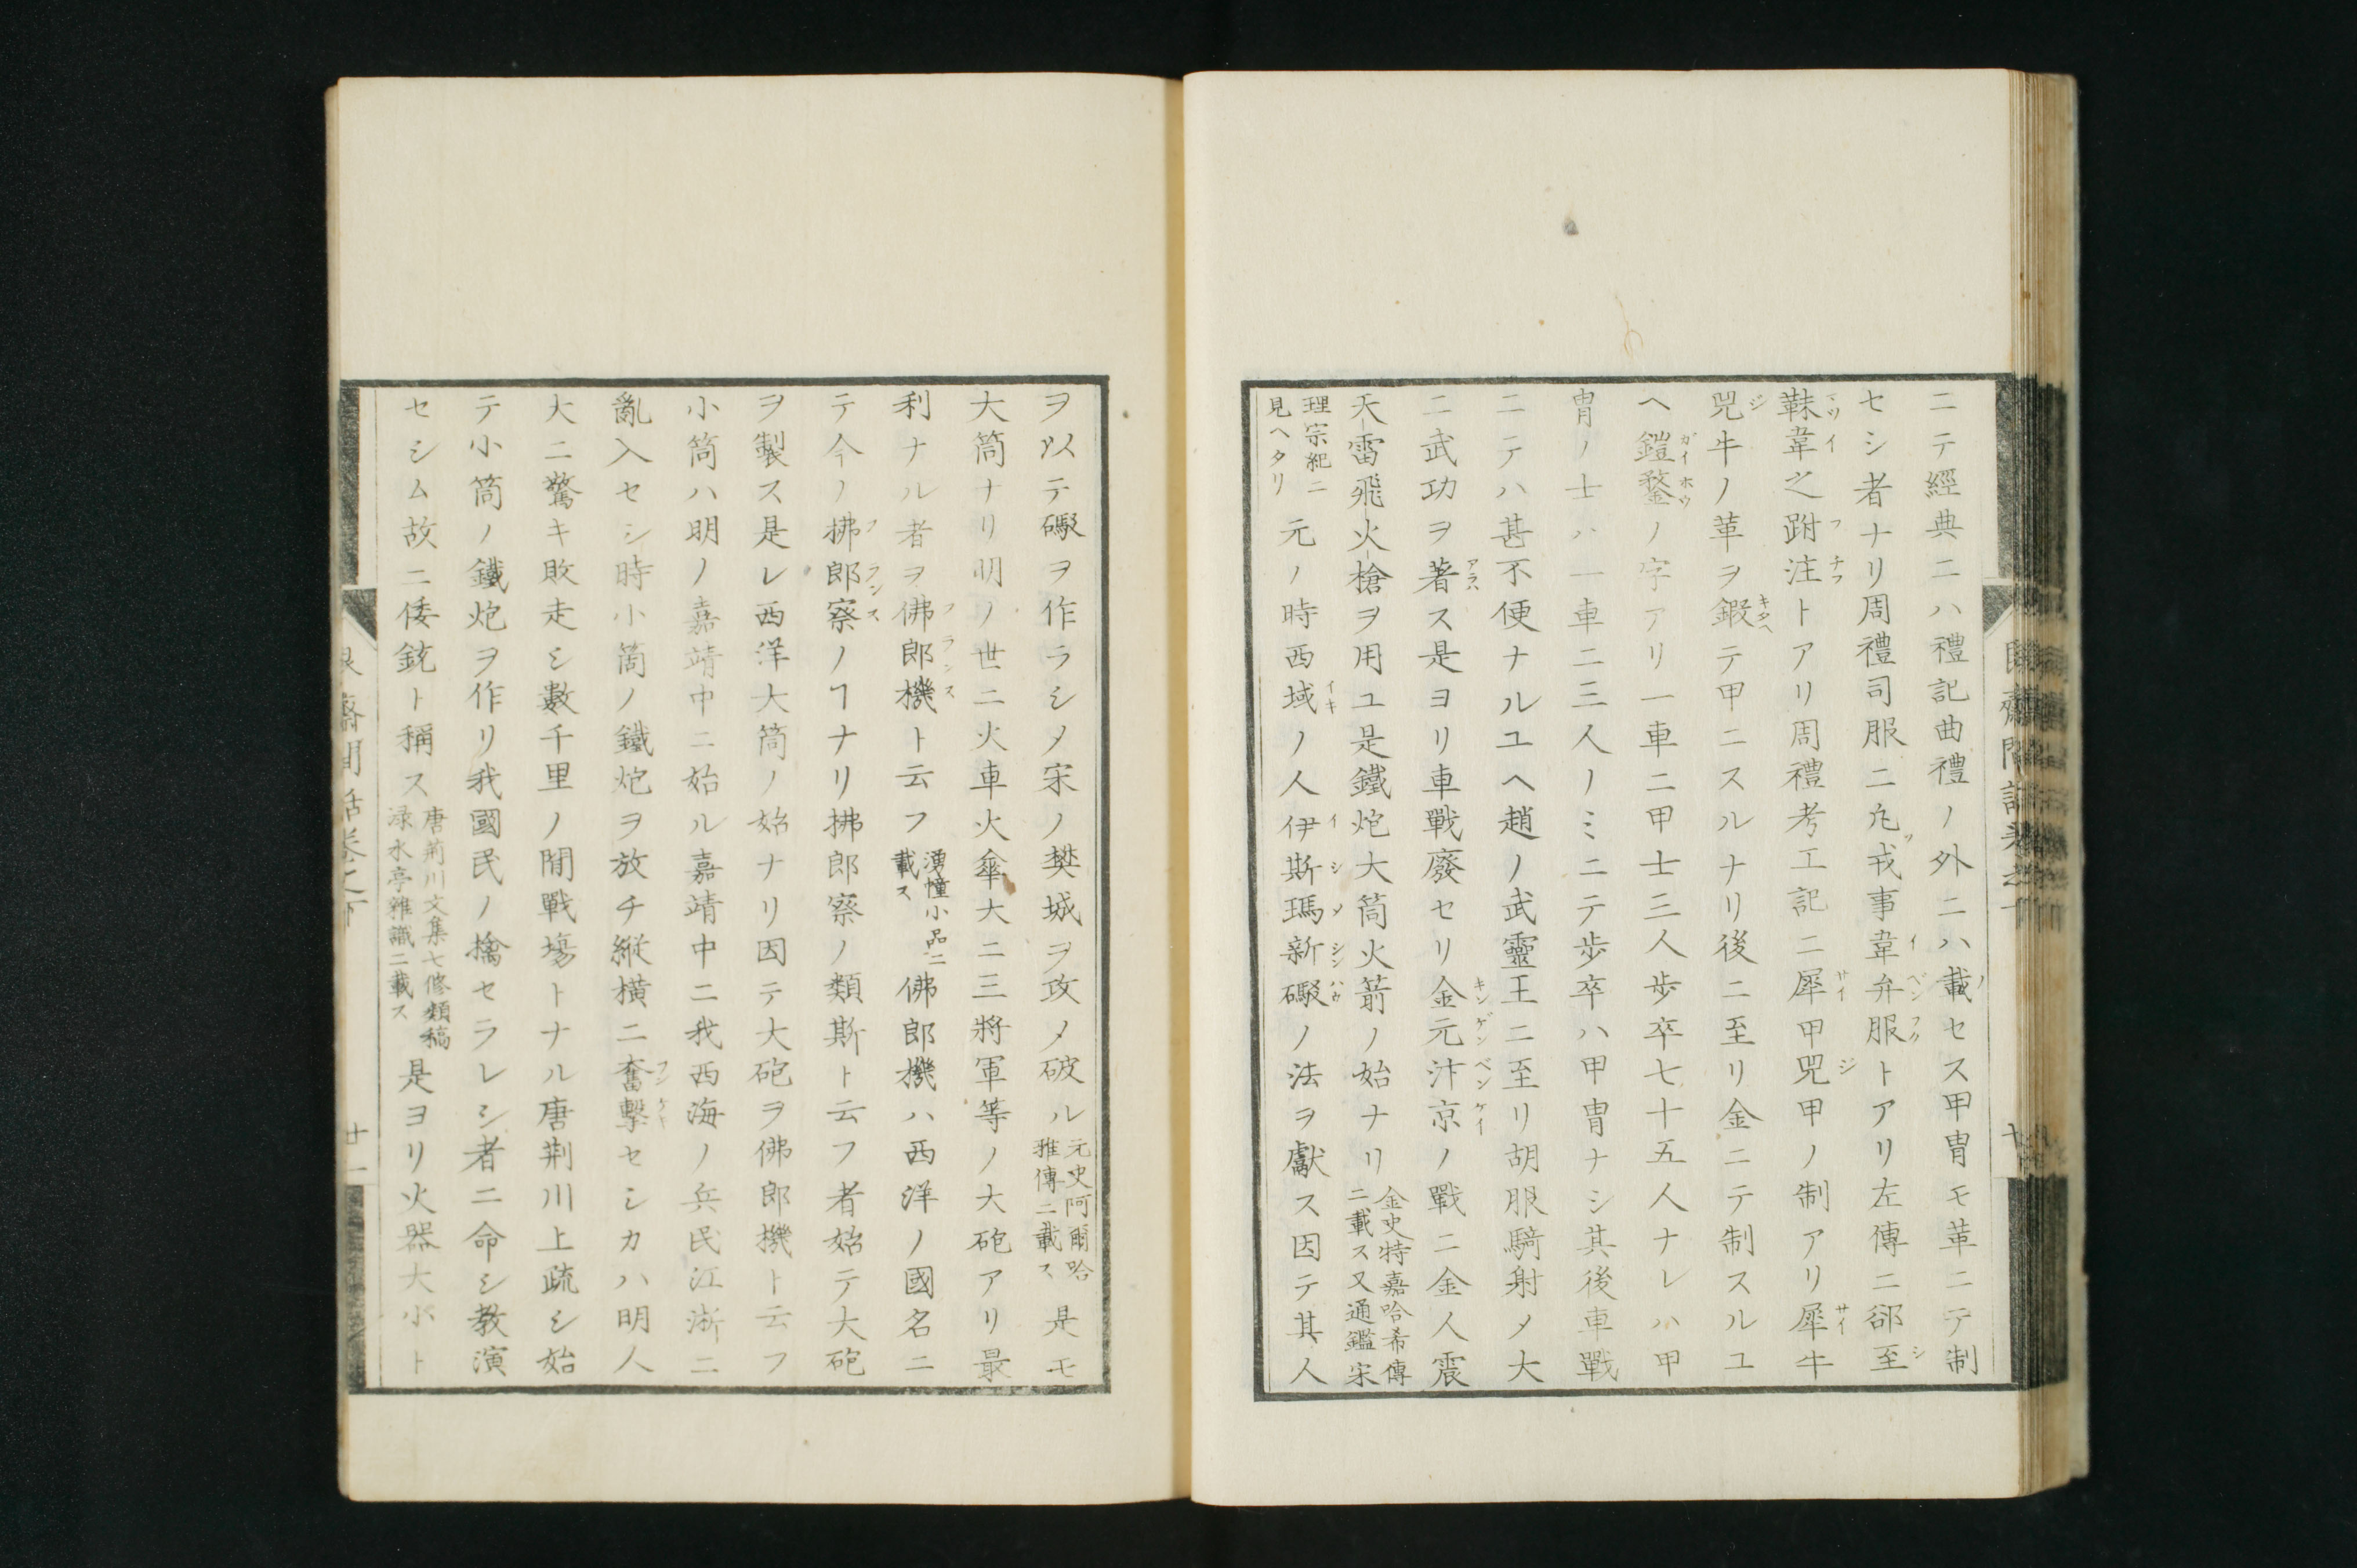 ニテ經典ニハ禮記曲禮ノ外ニハ載セス甲冑モ革ニテ制
セシ者ナリ周禮司服ニ凡戎事韋弁服トアリ左傳ニ郤至
韎韋之跗注トアリ周禮考工記ニ犀甲兕甲ノ制アリ犀牛
兕牛ノ革ヲ鍜テ甲ニスルナリ後ニ至リ金ニテ制スルユ
ヘ鎧鍪ノ字アリ一車ニ甲士三人歩卒七十五人ナレハ甲
冑ノ士ハ一車ニ三人ノミニテ歩卒ハ甲冑ナシ其後車戰
ニテハ甚不便ナルユヘ趙ノ武靈王ニ至リ胡服騎射メ大
ニ武功ヲ著ス是ヨリ車戰廢セリ金元汴京ノ戰ニ金人震
天雷飛火槍ヲ用ユ是鐵炮大筒火箭ノ始ナリ金史特嘉哈希傳ニ載ス又通鑑宋
理宗紀ニ見ヘタリ元ノ時西域ノ人伊斯瑪新礮ノ法ヲ獻ス因テ其人
ヲ以テ礮ヲ作ラシメ宋ノ樊城ヲ攻メ破ル元史阿爾哈雅傳ニ載ス是モ
大筒ナリ明ノ世ニ火車火傘大ニ三將軍等ノ大砲アリ最
利ナル者ヲ佛郎機ト云フ湧幢小品ニ載ス佛郎機ハ西洋ノ國名ニ
テ今ノ拂郎察ノヿナリ拂郎察ノ類斯ト云フ者始テ大砲
ヲ製ス是レ西洋大筒ノ始ナリ因テ大砲ヲ佛郎機ト云フ
小筒ハ明ノ嘉靖中ニ始ル嘉靖中ニ我西海ノ兵民江淅ニ
亂入セシ時小筒ノ鐵炮ヲ放チ縱橫ニ奮擊セシカハ明人
大ニ驚キ敗走シ數千里ノ間戰塲トナル唐荆川上疏シ始
テ小筒ノ鐵炮ヲ作リ我國民ノ擒セラレシ者ニ命シ教演
セシム故ニ倭銃ト稱ス唐荊川文集七修類稿渌水亭雜識ニ載ス是ヨリ火器大小ト
齋間話卷之下
廿一